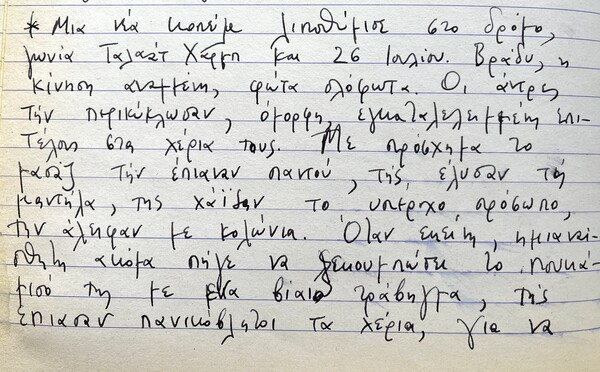 * Μια νέα κοπέλα λιποθύμισε στο δρόμο,
γωνία Ταλαάτ Χάρμπ και 26 Ιουλίου. Βράδυ, η
κίνηση αναμμένη, φώτα ολόφωτα. Οι άντρες
την περικύκλωσαν, όμορφη, εγκαταλελειμμένη επι-
τέλους στα χέρια τους. Με πρόσχημα το
μασάζ την έπιαναν παντού, της έλυσαν τη
μαντήλα, της χάιδεψαν το υπέροχο πρόσωπο,
την άλειφαν με κολώνια. Όταν εκείνη, ημιαναί-
σθητη ακόμα πήγε να ξεκουμπώσει το πουκά-
μισό της με ένα βίαιο τράβηγμα, της
έπιασαν πανικόβλητοι τα χέρια, για να